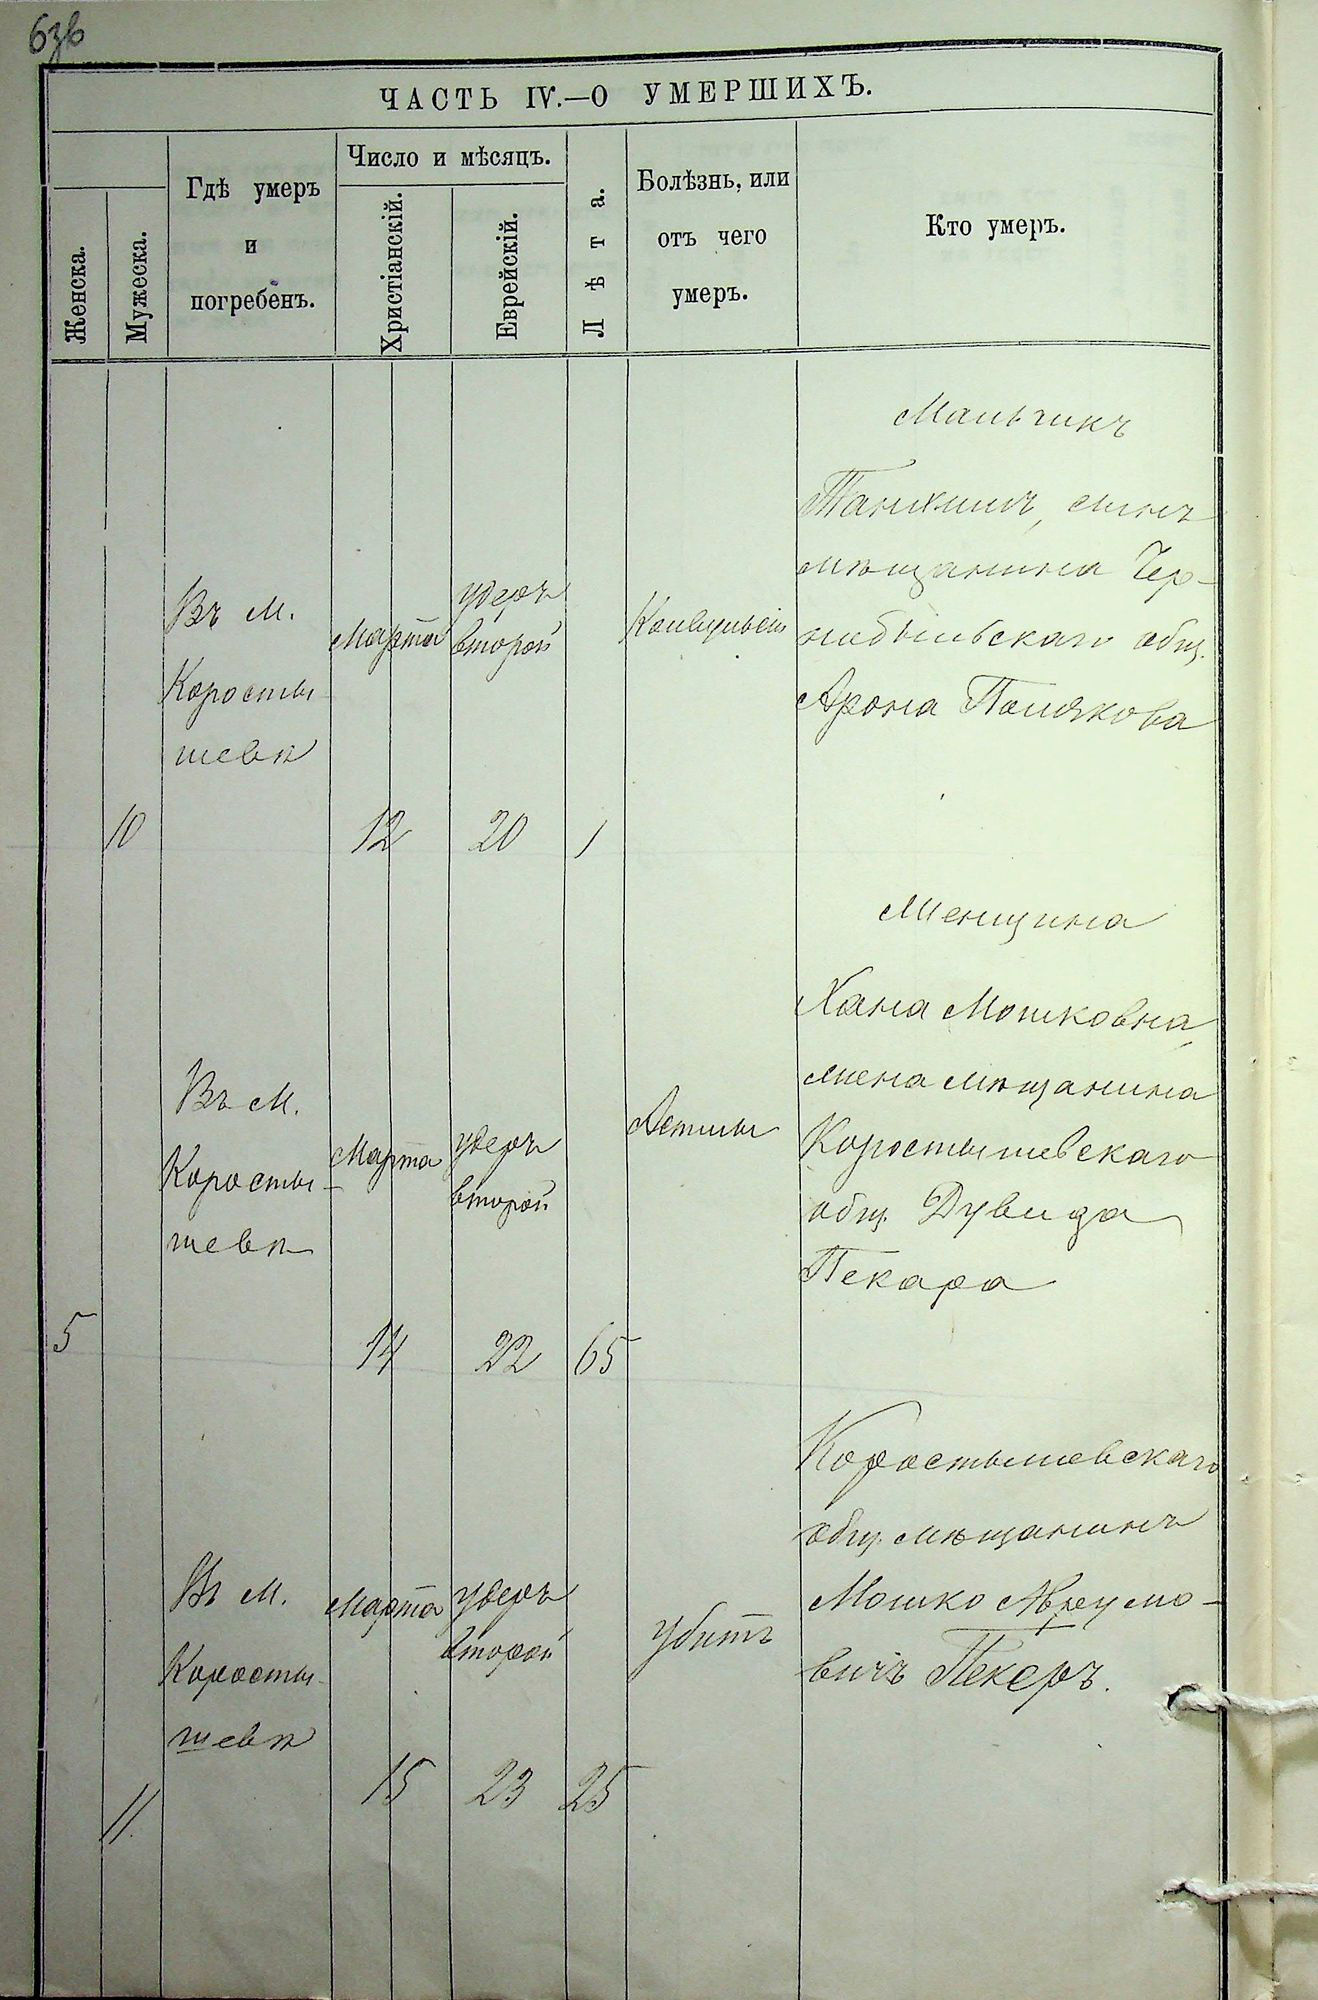 63в
ЧАСТЬ IV.—О УМЕРШИХЪ.
Женска.
Мужеска.
Гдѣ умеръ
и
погребенъ.
Число и мѣсяцъ.
Христіанскій.
Еврейскій.
Лѣта.
Болѣзнь, или
отъ чего
умеръ.
Кто умеръ.
10
Въ М.
Коросты
шевѣ
Марта
12
удеръ
второй
20
1
Мальчикъ
Танхимъ, сынъ
мѣщанина Чер-
нобыльскаго общ.
Арона Полякова
5
Въ М.
Коросты-
шевѣ
Марта
14
удеръ
второй
22
65
Астмы
Женщина
Хана Мошковна,
жена мѣщанина
Коростышевскаго
общ. Дувида
Пекара
11.
Въ М.
Коросты-
шевѣ
Марта
15
удеръ
второй
23
25
Убитъ
Коростышевскаго
общ. мѣщанинъ
Мошко Аврумо-
вичъ Пекеръ.